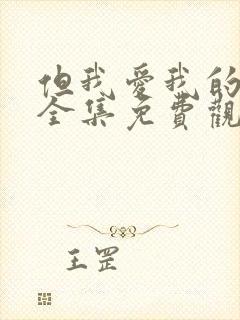 但我愛我的
全集免費觀
王罡